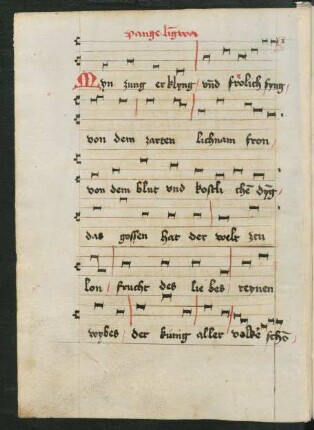 Pange lingwa
Myn zung erklyng / und frölich syng /
von dem zarten lichnam fron
von dem blut vnd kostlichen dyng /
das gossen hat der welt zcu
lon / frucht des liebes reynen
wybes / der künig aller volke schō